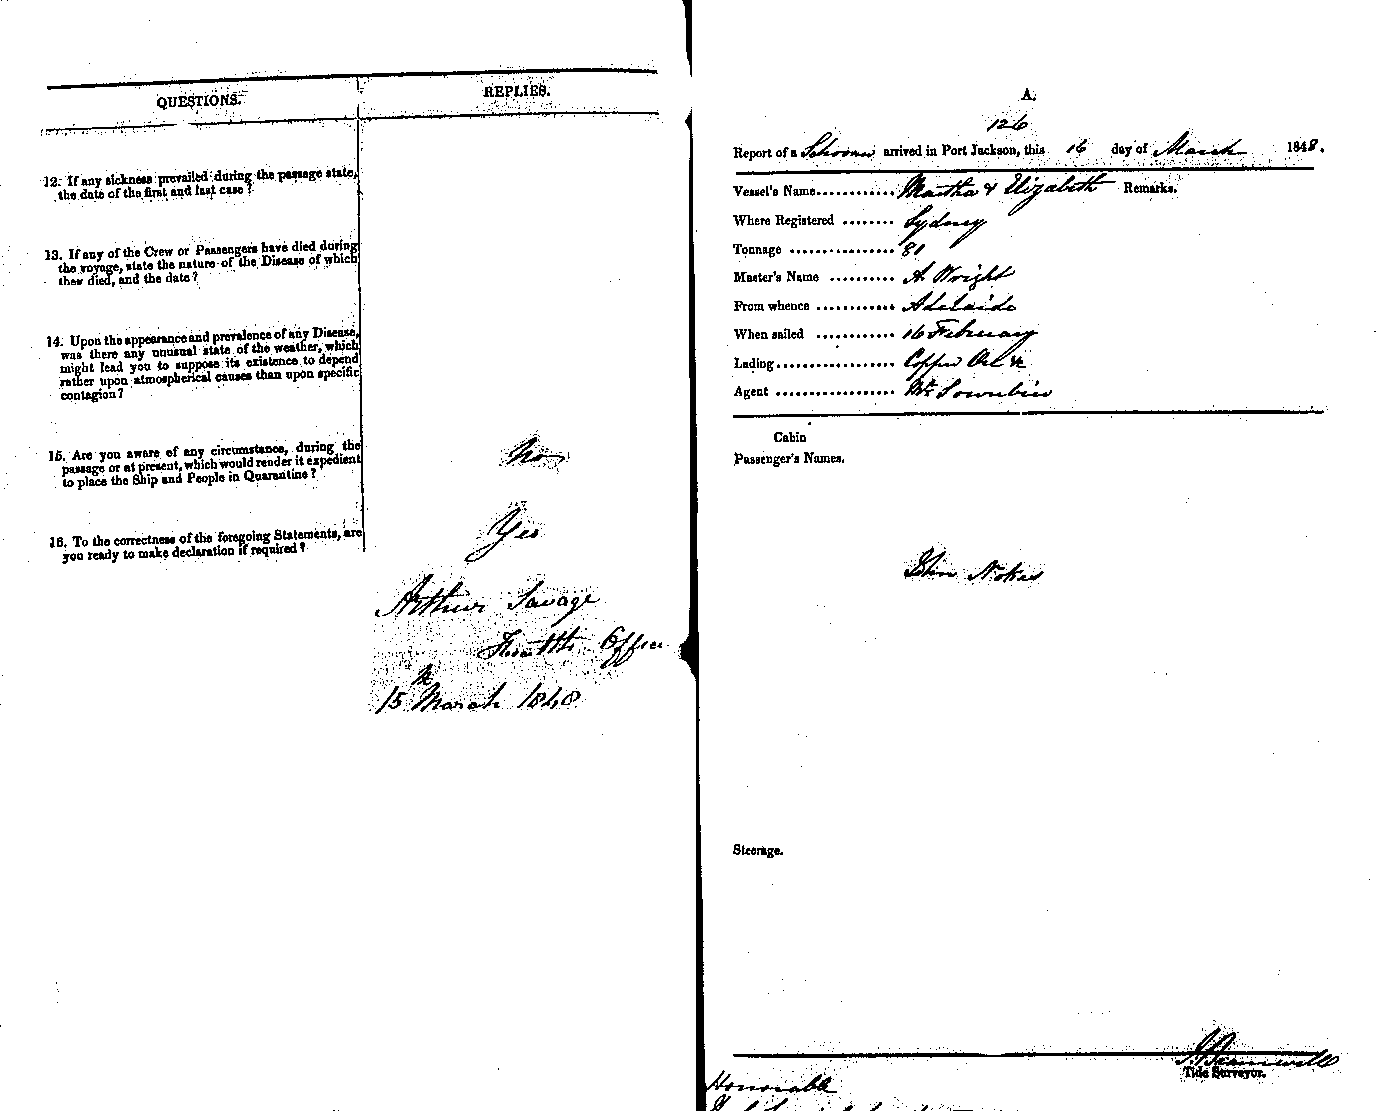 QUESTIONS.
REPLIES.
12. If any sickness prevailed during the passage state,
the date of the first and last case?
13. If any of the Crew or Passengers have died during
the voyage, state the nature of the Disease of which
they died, and the date?
14. Upon the appearance and prevalence of any Disease,
was there any unusual state of the weather, which
might lead you to suppose its existence to depend
rather upon atmospherical causes than upon specific
contagion?
15. Are you aware of any circumstance, during the
passage or at present, which would render it expedient
to place the Ship and People in Quarantine?
No
16. To the correctness of the foregoing Statements, are
you ready to make declaration if required?
Yes
Arthur Savage
Health Officer
15th March 1848
A.
126
Report of a Schooner arrived in Port Jackson, this 16 day of March 1848.
Vessel's Name............ Martha & Elizabeth Remarks.
Where Registered ........ Sydney
Tonnage ................ 81
Master's Name .......... A. Wright
From whence ............ Adelaide
When sailed ............ 16 February
Lading.................. Copper Ore &c
Agent ..................
Cabin
Passenger's Names.
John Nokes
Steerage.
Tide Surveyor.
Honorable